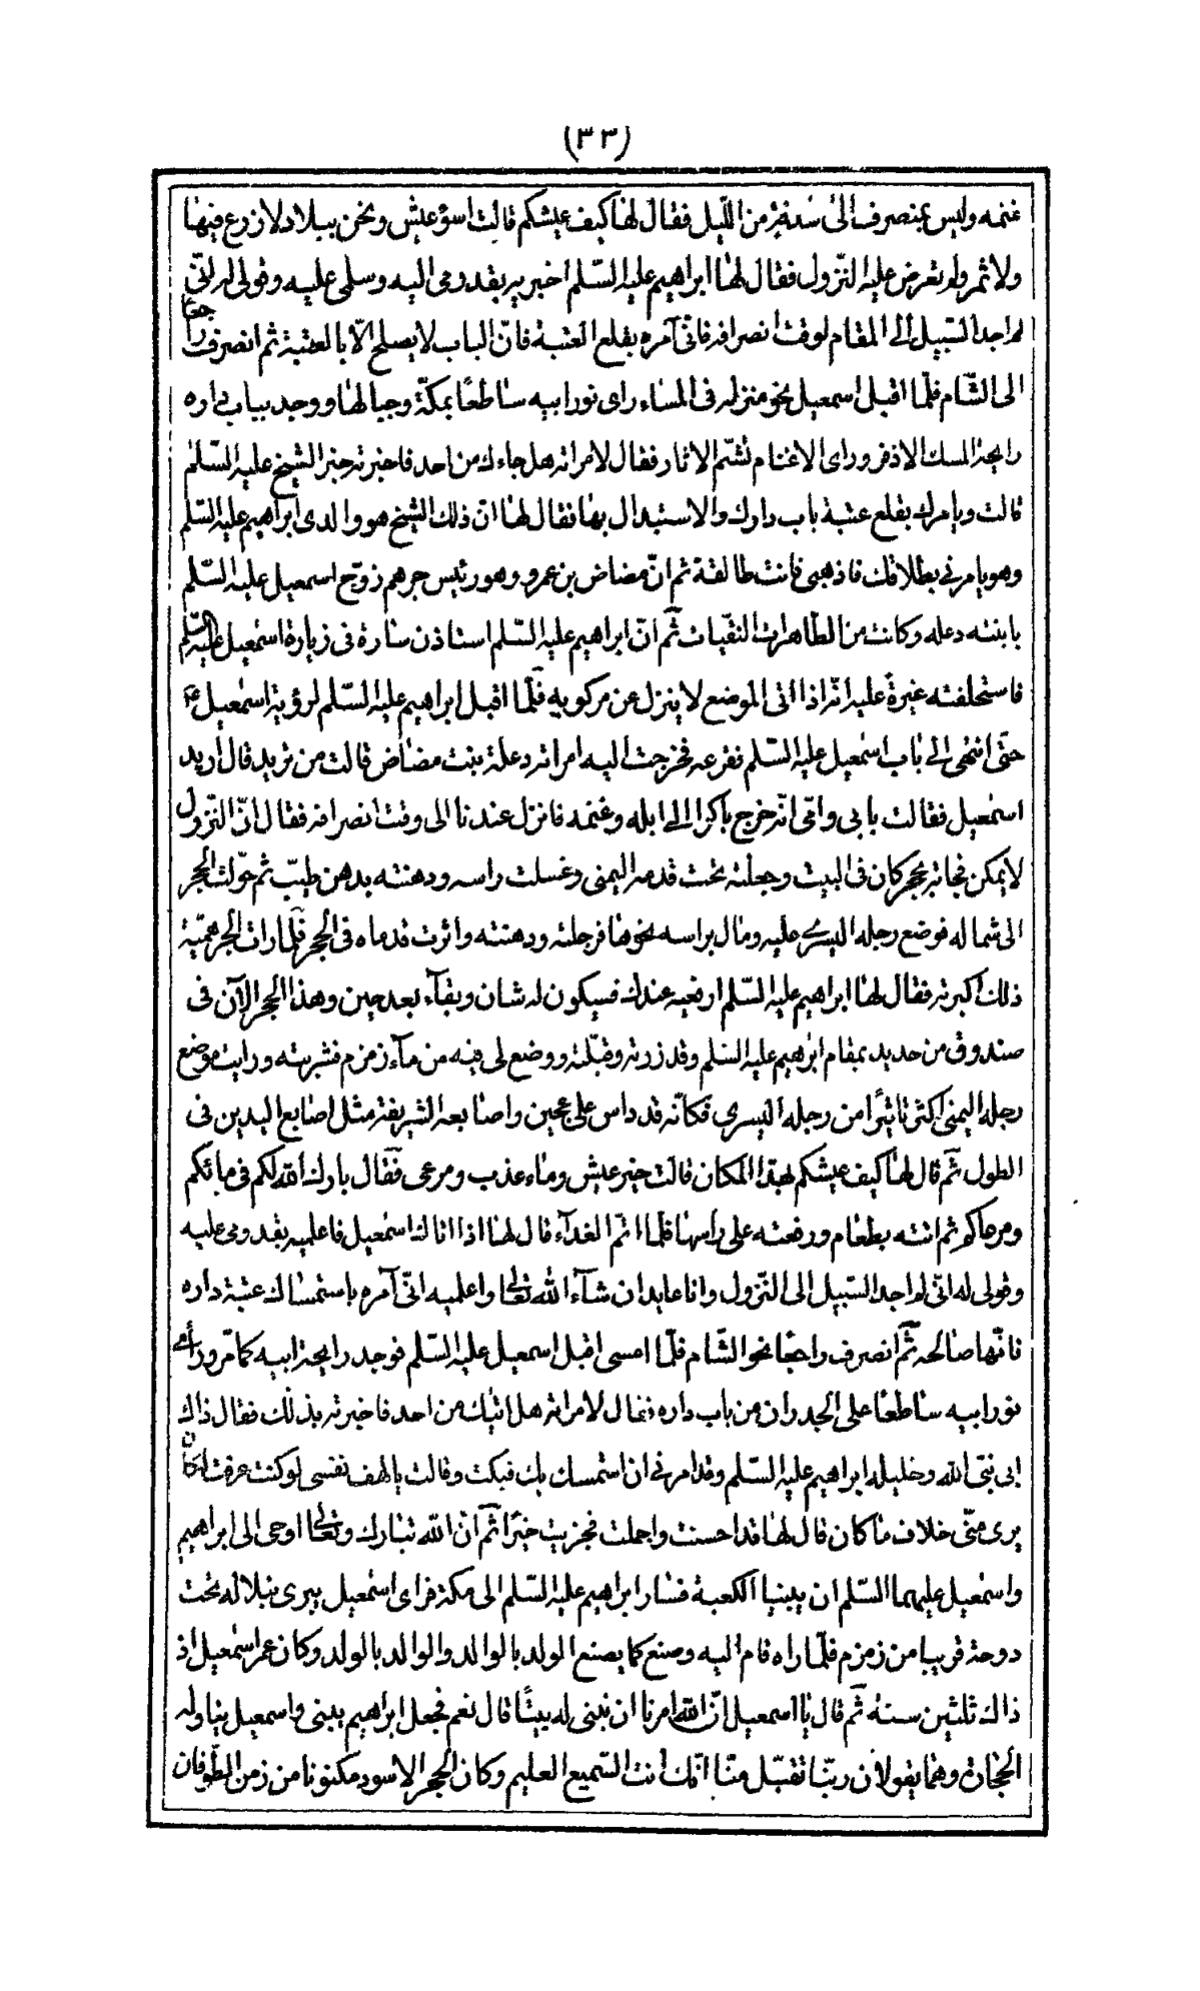 (٣٣)
غنمه وليس بمنصرف الى سدفة من الليل فقال لها كيف عيشكم قالت اسوء عيش ونحن ببلاد لا زرع فيها
ولا ثمر ولم تعرض عليه النزول فقال لها ابراهيم عليه السلم اخبريه بقدومى اليه وسلمى عليه وقولى له انى
لم اجد السبيل الى المقام لوقت انصرافه فانى آمره بقلع العتبة فان الباب لا يصلح الا بالعتبة ثم انصرف راجعا
الى الشام فلما اقبل اسمعيل نحو منزله فى المساء راى نور ابيه ساطعا بمكة وجبالها ووجد بباب داره
رايحة المسك الاذفر وراى الاغنام تشم الاثار فقال لامراته هل جاءك من احد فاخبرته خبر الشيخ عليه السلم
قالت ويامرك بقلع عتبة باب دارك والاستبدال بها فقال لها ان ذلك الشيخ هو والدى ابراهيم عليه السلم
وهو يامرنى بطلاقك فاذهبى فانت طالقة ثم ان مضاض بن عمرو وهو رئيس جرهم زوج اسمعيل عليه السلم
بابنته دعله وكانت من الطاهرات النقيات ثم ان ابراهيم عليه السلم استاذن سارة فى زيارة اسمعيل عليه السلم
فاستحلفته غيرة عليه انه اذا اتى الموضع لا ينزل عن مركوبه فلما اقبل ابراهيم عليه السلم لرؤية اسمعيل ع
حتى انتهى الى باب اسمعيل عليه السلم فقرعه فخرجت اليه امراته دعلة بنت مضاض قالت من تريد قال اريد
اسمعيل فقالت بابى وامى انه خرج باكرا الى ابله وغنمه فانزل عندنا الى وقت انصرافه فقال ان النزول
لا يمكن فجاته بحجر كان فى البيت وجعلته تحت قدمه اليمنى وغسلت راسه ودهنته بدهن طيب ثم حولت الحجر
الى شماله فوضع رجله اليسرى عليه ومال براسه نحوها فرجلته ودهنته واثرت قدماه فى الحجر فلما رات الجرهمية
ذلك اكبرته فقال لها ابراهيم عليه السلم ارفعيه عندك فسيكون له شان وبقآء بعد حين وهذا الحجر الآن فى
صندوق من حديد بمقام ابرهيم عليه السلم وقد زرته وقبلته ووضع لى فيه من مآء زمزم فشربته ورايت موضع
رجله اليمنى اكثر تاثيرا من رجله اليسرى فكانه قد داس على عجين واصابعه الشريفة مثل اصابع اليدين فى
الطول ثم قال لها كيف عيشكم بهذا المكان قالت خير عيش وماء عذب ومرعى فقال بارك الله لكم فى مائكم
ومرعاكم ثم اتته بطعام ورفعته على راسها فلما اتم الغدآء قال لها اذا اتاك اسمعيل فاعلميه بقدومى عليه
وقولى له انى لم اجد السبيل الى النزول وانا عايد ان شآء الله تعالى واعلميه انى آمره باستمساك عتبة داره
فانها صالحه ثم انصرف راجعا نحو الشام فلما امسى اقبل اسمعيل عليه السلم فوجد رايحة ابيه كما مر وراى
نور ابيه ساطعا على الجدران من باب داره فقال لامراته هل اتيك من احد فاخبرته بذلك فقال ذاك
ابى نبى الله وخليله ابراهيم عليه السلم وقد امرنى ان استمسك بك فبكت وقالت يا لهف نفسى لو كنت عرفت لكان
يرى منى خلاف ما كان قال لها قد احسنت واجملت فجزيت خيرا ثم ان الله تبارك وتعالى اوحى الى ابراهيم
واسمعيل عليهما السلم ان يبنيا الكعبة فسار ابراهيم عليه السلم الى مكة فراى اسمعيل يبرى نبلا له تحت
دوحة قريبا من زمزم فلما راه قام اليه وصنع كما يصنع الولد بالوالد والوالد بالولد وكان عمر اسمعيل اذ
ذاك ثلثين سنة ثم قال يا اسمعيل ان الله امرنا ان نبنى له بيتا قال نعم فجعل ابراهيم يبنى واسمعيل يناوله
الحجارة وهما يقولان ربنا تقبل منا انك انت السميع العليم وكان الحجر الاسود مكنونا من زمن الطوفان